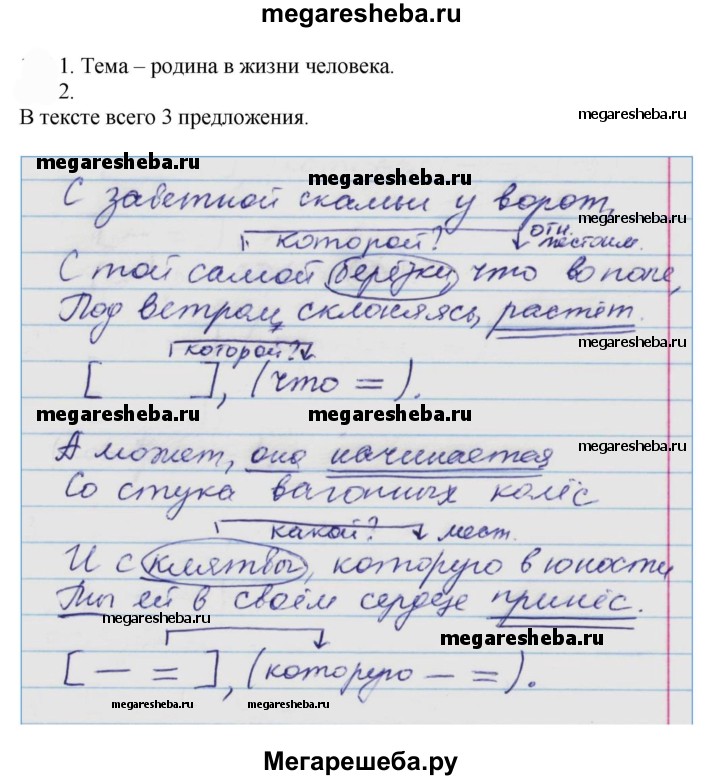 megaresheba.ru
1. Тема – родина в жизни человека.
2.
В тексте всего 3 предложения.
megaresheba.ru
megaresheba.ru
megaresheba.ru
С заветной скамьи у ворот,
megaresheba.ru
которой?
отн. местоим.
С той самой берёзки, что во поле,
Под ветром, склоняясь, растёт.
megaresheba.ru
которой?
[ ], (что = ).
megaresheba.ru
megaresheba.ru
megaresheba.ru
А может, она начинается
Со стука вагонных колёс
какой? мест.
И с клятвы, которую в юности
megaresheba.ru
Ты ей в своём сердце принёс.
megaresheba.ru
megaresheba.ru
[ — = ], (которую — = ).
megaresheba.ru
megaresheba.ru
megaresheba.ru
Мегарешеба.ру